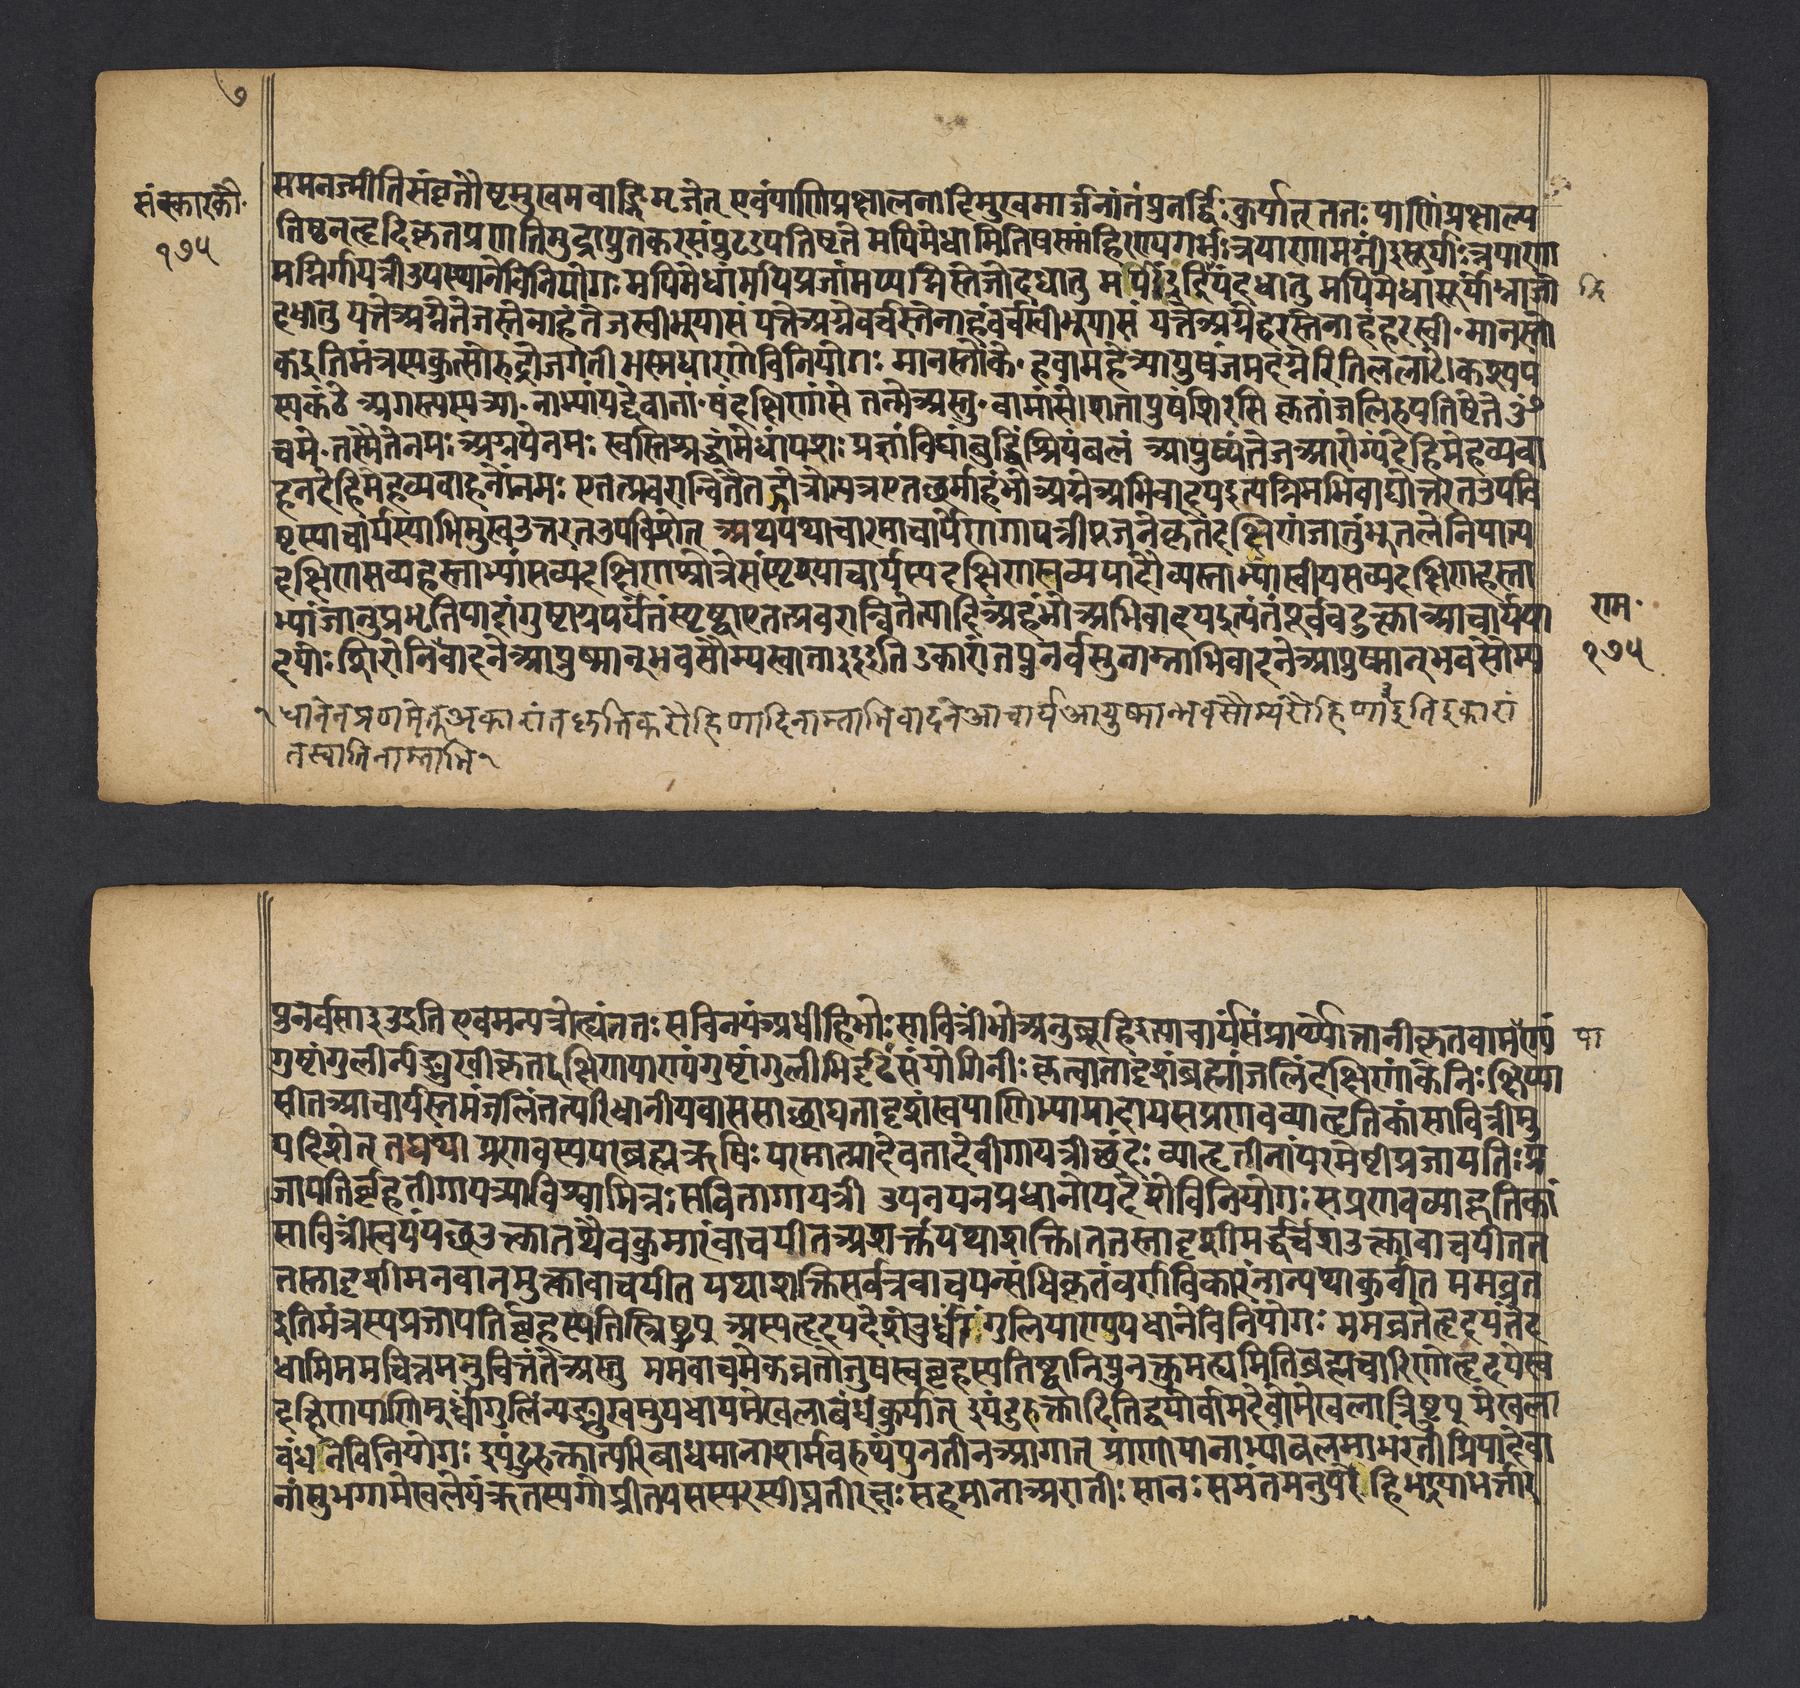 ७
संस्कारकौ॰
१७५
समनज्मीतिसंवृतौष्ठमुखमवाङ्निमृजेत् एवंपाणिप्रक्षालनादिमुखमार्जनांतंपुनर्द्विः कुर्यात् ततः पाणिंप्रक्षाल्य
तिष्ठन् हृदिकृतप्रणतिमुद्रापुतकरसंपुटउपतिष्ठते मयिमेधामितिषस्मांहिरण्यगर्भःत्रयाणामग्नींद्रसूर्याःत्रयाणा
मग्निर्गायत्रीउपस्थानेविनियोगः मयिमेधांमयिप्रजांमय्यग्निस्तेजोदधातु मयींद्रइंद्रियंदधातु मयिमेधांसूर्योभ्राजो
दधातु यत्तेअग्नेतेजस्तेनाहंतेजस्वीभूयासं यत्तेअग्नेवर्चस्तेनाहंवर्चस्वीभूयासं यत्तेअग्नेहरस्तेनाहंहरस्वी॰ मानस्तो
कइतिमंत्रस्यकुत्सोरुद्रोजगती भस्मधारणेविनियोगः मानस्तोके॰ हवामहेत्र्यायुषंजमदग्नेरितिललाटे।कश्यप
स्यकंठे अगस्त्यस्यत्र्या॰ नाभ्यांयद्देवानां॰षंदक्षिणांसे तन्मेअस्तु॰ वामांसे।शतायुषंशिरसि कृतांजलिरुपतिष्ठेत ॐ
चमे॰ तस्मैतेनमः अग्नयेनमः स्वस्तिश्रद्धांमेधांयशः प्रज्ञांविद्यांबुद्धिंश्रियंबलं आयुष्यंतेजआरोग्यंदेहिमेहव्यवा
हनदेहिमेहव्यवाहनोंनमः एतत्प्रवरान्वितैतद्गोत्रोत्पन्नएतच्छर्माहंभोअग्नेअभिवादयइत्यग्निमभिवाद्योत्तरतउपवि
ष्टस्याचार्यस्याभिमुखउत्तरतउपविशेत् अथयथाचारमाचार्येणगायत्रीपूजनेकृतेदक्षिणंजानुंभूतलेनिपात्य
दक्षिणसव्यहस्ताभ्यांसव्यदक्षिणश्रोत्रेसंस्पृश्याचार्यस्यदक्षिणसव्यपादौव्यस्ताभ्यांस्वीयसव्यदक्षिणहस्ता
भ्यांजानुप्रभृतिपादांगुष्ठाग्रपर्यंतंस्पृष्ट्वाएतत्प्रवरान्वितेत्यादिअहंभोअभिवादयइत्यंतंपूर्ववदुक्त्वाआचार्यपा
दयोः शिरोनिवादनेआयुष्मान्भवसौम्यस्वाता३इइति उकारांतपुनर्वसुनाम्नाभिवादनेआयुष्मान्भवसौम्य
द्रि
राम॰
१७५
१ धानेनप्रणमेत्अकारांतकृत्तिकरौहिणादिनाम्नाभिवादनेआचार्यआयुष्मान्भवसौम्यरौहिणा३इतिइकारां
तस्वातिनाम्नाभि १
पुनर्वसा३उइति एवमन्यत्रोह्यंततः सविनयंअधीहिभोः सावित्रींभोअनुब्रूहिइत्याचार्यसंप्रार्थ्योत्तानीकृतवामपाण्यं
पा
गुष्ठांगुलीर्न्यङ्मुखीकृतदक्षिणपाण्यंगुष्ठांगुलीभिर्दृढंसंयोगिनीः कृत्वातादृशंब्रह्मांजलिंदक्षिणांकेनिःक्षिप्या
सीतआचार्यस्तमंजलिंतत्परिधानीयवाससाच्छाद्यतादृशंस्वपाणिभ्यामादायसप्रणवव्याहृतिकांसावित्रीमु
पदिशेत् तद्यथा प्रणवस्यपरब्रह्मऋषिः परमात्मादेवतादेवीगायत्रीछंदः व्याहृतीनांपरमेष्ठीप्रजापतिःप्र
जापतिर्बृहतीगायत्र्याविश्वामित्रः सवितागायत्री उपनयनप्रधानोपदेशेविनियोगः सप्रणवव्याहृतिकां
सावित्रींस्वयंपच्छउक्त्वातथैवकुमारंवाचयीतअशक्तंयथाशक्ति।ततस्तादृशीमर्द्धर्चशउक्त्वावाचयीतत
तस्तादृशीमनवानमुक्त्वावाचयीत यथाशक्तिसर्वत्रवाचयन्संधिकृतंवर्णविकारंनान्यथाकुर्वीत ममव्रत
इतिमंत्रस्यप्रजापतिर्बृहस्पतिस्त्रिष्टुप् अस्यहृदयदेशेउर्ध्वांगुलिपाण्युपधानेविनियोगः ममव्रतेहृदयंतेद
धामिममचित्तमनुचित्तंतेअस्तु ममवाचमेकव्रतोजुषस्वबृहस्पतिष्ट्वानियुनक्तुमह्यमितिब्रह्मचारिणोहृदयेस्व
दक्षिणपाणिमूर्ध्वांगुलिंन्यङ्मुखमुपधायमेखलाबंधंकुर्यात् इयंदुरुक्तादितिद्वयोर्वामदेवोमेखलात्रिष्टुप् मेखला
बंधनेविनियोगः इयंदुरुक्तात्परिबाधमानाशर्मवरूथंपुनतीनआगात् प्राणापानाभ्यांबलमाभरंतीप्रियादेवा
नांसुभगामेखलेयं ऋतस्यगोप्त्रीतपसस्परस्पीघ्नतीरक्षः सहमानाअरातीः सानः समंतमनुपरेहिभद्रयाभर्त्तार